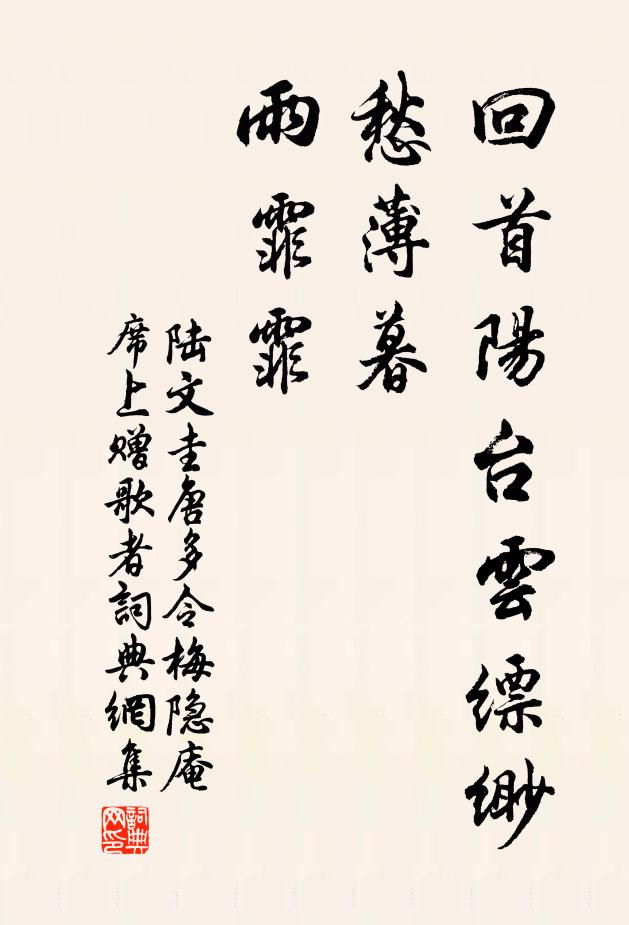 回首陽台雲縹緲
愁薄暮
雨霏霏
陆文圭唐多令梅隐庵
席上赠歌者詞典網集
詞典网印